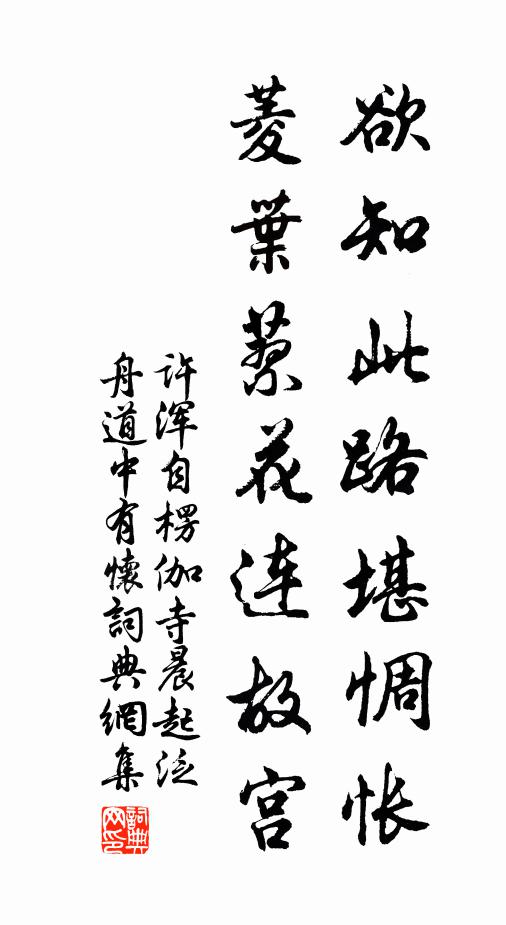 欲知此路堪惆怅
菱葉蓼花连故宫
许浑自楞伽寺晨起泛
舟道中有懷詞典網集
詞典
网印